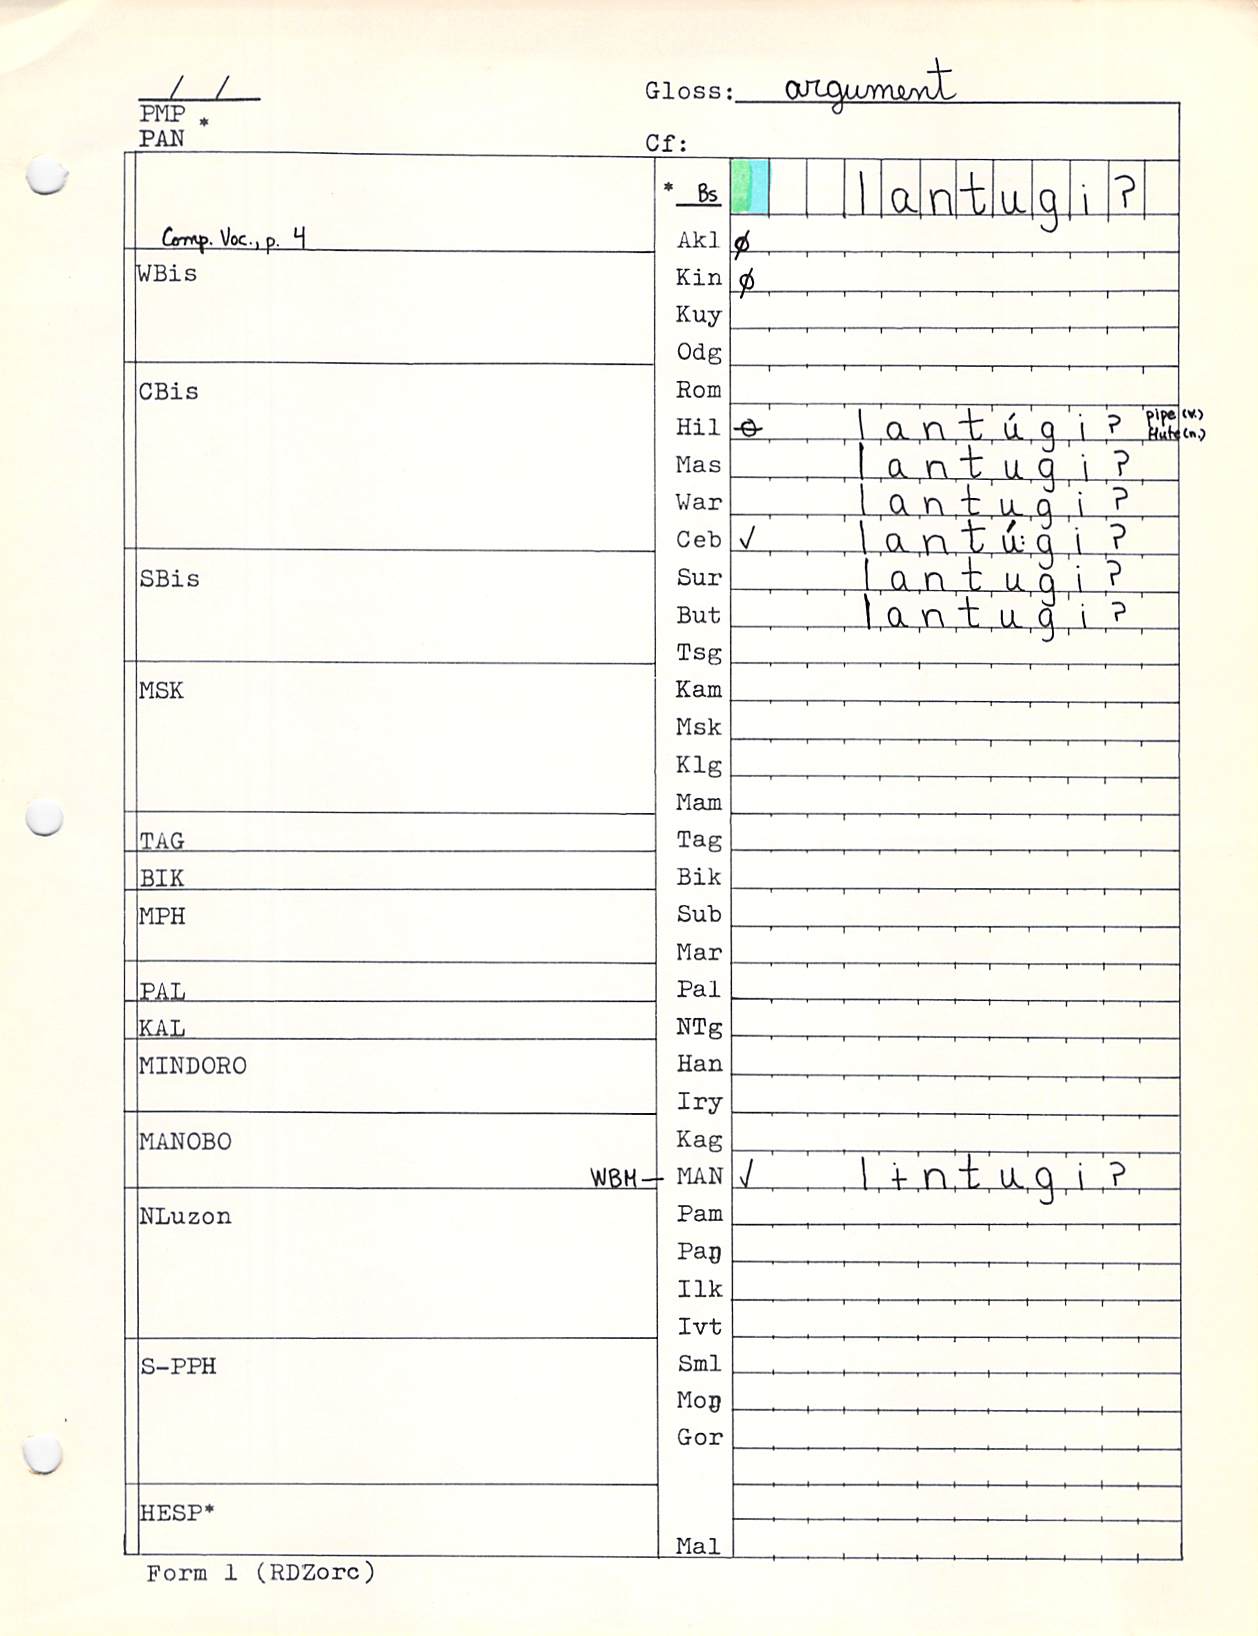 / /
Gloss: argument
PMP *
PAN
Cf:
* Bs lantugi?
Comp. Voc., p. 4
Akl ø
WBis
Kin ø
Kuy
Odg
CBis
Rom
Hil ɵ lantúgi? pipe (v.)
flute (n.)
Mas lantugi?
War lantugi?
Ceb ✓ lantú:gi?
SBis
Sur lantugi?
But lantugi?
Tsg
MSK
Kam
Msk
Klg
Mam
TAG
Tag
BIK
Bik
MPH
Sub
Mar
PAL
Pal
KAL
NTg
MINDORO
Han
Iry
MANOBO
Kag
WBM — MAN ✓ lɨntugi?
NLuzon
Pam
Paŋ
Ilk
Ivt
S-PPH
Sml
Moŋ
Gor
HESP*
Mal
Form 1 (RDZorc)